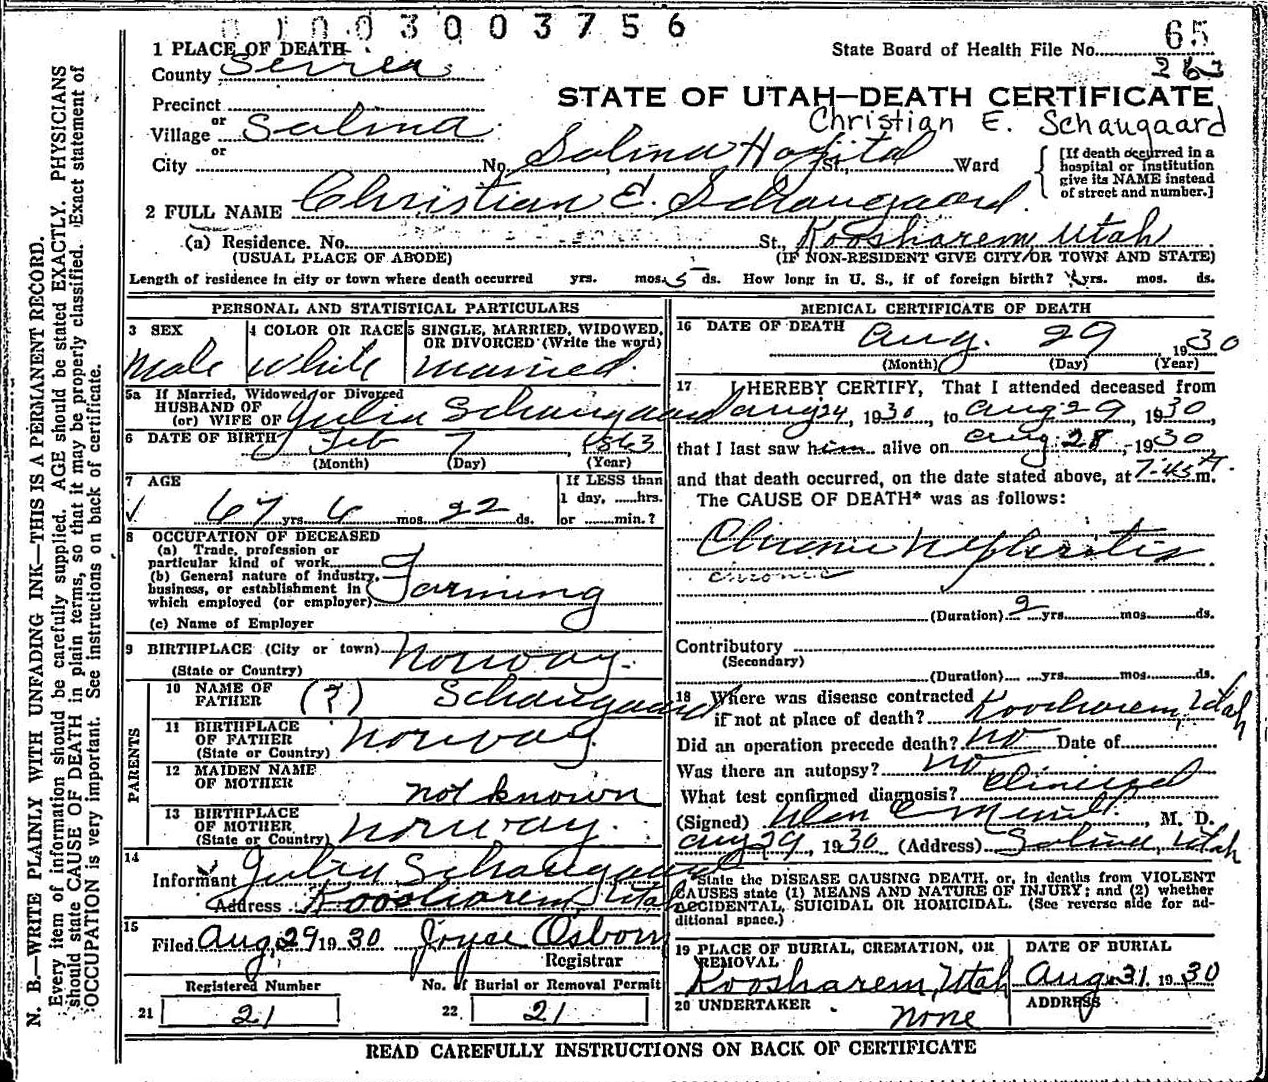 01003003756
1 PLACE OF DEATH
State Board of Health File No. 65
262
County Sevier
STATE OF UTAH—DEATH CERTIFICATE
Precinct
or
Christian E. Schaugaard
Village Salina
or
City No. Salina Hospital St., Ward
[If death occurred in a hospital or institution give its NAME instead of street and number.]
2 FULL NAME Christian E. Schaugaard
(a) Residence. No. St., Koosharem, Utah
(USUAL PLACE OF ABODE) (IF NON-RESIDENT GIVE CITY OR TOWN AND STATE)
Length of residence in city or town where death occurred yrs. mos. 5 ds. How long in U. S., if of foreign birth? yrs. mos. ds.
PERSONAL AND STATISTICAL PARTICULARS
3 SEX Male
4 COLOR OR RACE White
5 SINGLE, MARRIED, WIDOWED, OR DIVORCED (Write the word) Married.
5a If Married, Widowed, or Divorced
HUSBAND OF
(or) WIFE OF Julia Schaugaard
6 DATE OF BIRTH Feb 7, 1863
(Month) (Day) (Year)
7 AGE
67 yrs. 6 mos. 22 ds.
If LESS than
1 day, ......hrs.
or ......min.?
8 OCCUPATION OF DECEASED
(a) Trade, profession or
particular kind of work
(b) General nature of industry,
business, or establishment in
which employed (or employer) Farming
(c) Name of Employer
9 BIRTHPLACE (City or town)
(State or Country) Norway.
PARENTS
10 NAME OF FATHER (?) Schaugaard
11 BIRTHPLACE OF FATHER (State or Country) Norway.
12 MAIDEN NAME OF MOTHER not known
13 BIRTHPLACE OF MOTHER (State or Country) Norway.
14
Informant Julia Schaugaard
Address Koosharem, Utah
15
Filed Aug. 29 1930 Joyce Osborn
Registrar
Registered Number No. of Burial or Removal Permit
21 21 22 21
MEDICAL CERTIFICATE OF DEATH
16 DATE OF DEATH Aug. 29 1930
(Month) (Day) (Year)
17 I HEREBY CERTIFY, That I attended deceased from
Aug 24, 1930, to Aug 29, 1930,
that I last saw him alive on Aug. 28, 1930
and that death occurred, on the date stated above, at 7:45 A. m.
The CAUSE OF DEATH* was as follows:
Chronic Nephritis
chronic
(Duration) 2 yrs. mos. ds.
Contributory
(Secondary)
(Duration) yrs. mos. ds.
18 Where was disease contracted
if not at place of death? Koosharem, Utah
Did an operation precede death? No Date of
Was there an autopsy? No
What test confirmed diagnosis? Clinical
(Signed) , M. D.
Aug 29, 1930 (Address) Salina, Utah
*State the DISEASE CAUSING DEATH, or, in deaths from VIOLENT
CAUSES state (1) MEANS AND NATURE OF INJURY; and (2) whether
ACCIDENTAL, SUICIDAL OR HOMICIDAL. (See reverse side for ad-
ditional space.)
19 PLACE OF BURIAL, CREMATION, OR REMOVAL
Koosharem, Utah
DATE OF BURIAL
Aug. 31. 1930
20 UNDERTAKER
none
ADDRESS
READ CAREFULLY INSTRUCTIONS ON BACK OF CERTIFICATE
N. B.—WRITE PLAINLY WITH UNFADING INK—THIS IS A PERMANENT RECORD.
Every item of information should be carefully supplied. AGE should be stated EXACTLY. PHYSICIANS
should state CAUSE OF DEATH in plain terms, so that it may be properly classified. Exact statement of
OCCUPATION is very important. See instructions on back of certificate.